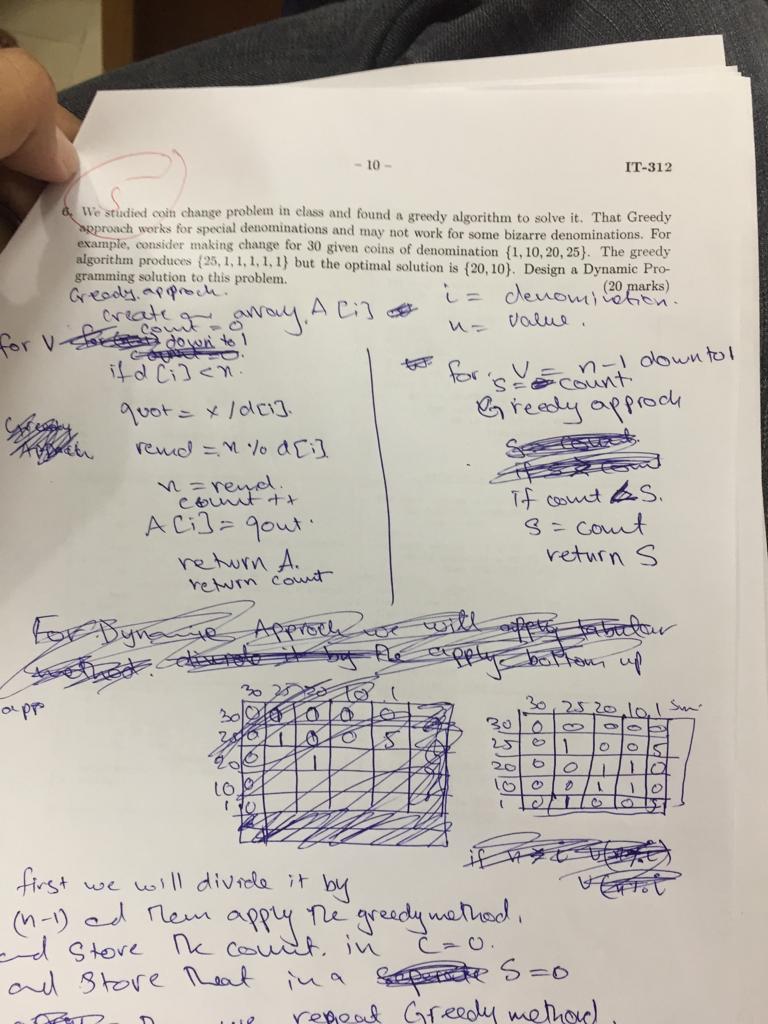 5
- 10 -
IT-312
6. We studied coin change problem in class and found a greedy algorithm to solve it. That Greedy
approach works for special denominations and may not work for some bizarre denominations. For
example, consider making change for 30 given coins of denomination {1, 10, 20, 25}. The greedy
algorithm produces {25, 1, 1, 1, 1, 1} but the optimal solution is {20, 10}. Design a Dynamic Pro-
gramming solution to this problem.
(20 marks)
Greedy approch.
create array, A [i]
i = denomination.
n = value.
count = 0
for V down to 1
if d [i] < n.
quot = x / d[i].
remd = n % d[i]
n = remd.
count ++
A [i] = qout.
return A.
return count
for V = n-1 down to 1
s = count
Greedy approch
if count < S.
S = count
return S
For Dynamic Approch we will apply tabular
method. divide it by the apply bottom up
app
30 25 20 10 1
30 0 0 0 0 0
25 0 1 0 0 5
20 0 1
10 0
1 0
30 25 20 10 1 Sum
30 0 0 0 0 0
25 0 1 0 0 5
20 0 0 1 1 0
10 0 0 1 1 0
1 0 1 0 0 5
first we will divide it by
(n-1) ad them apply the greedy method.
and Store the count. in C = 0.
and Store that in a S = 0
we repeat Greedy method.